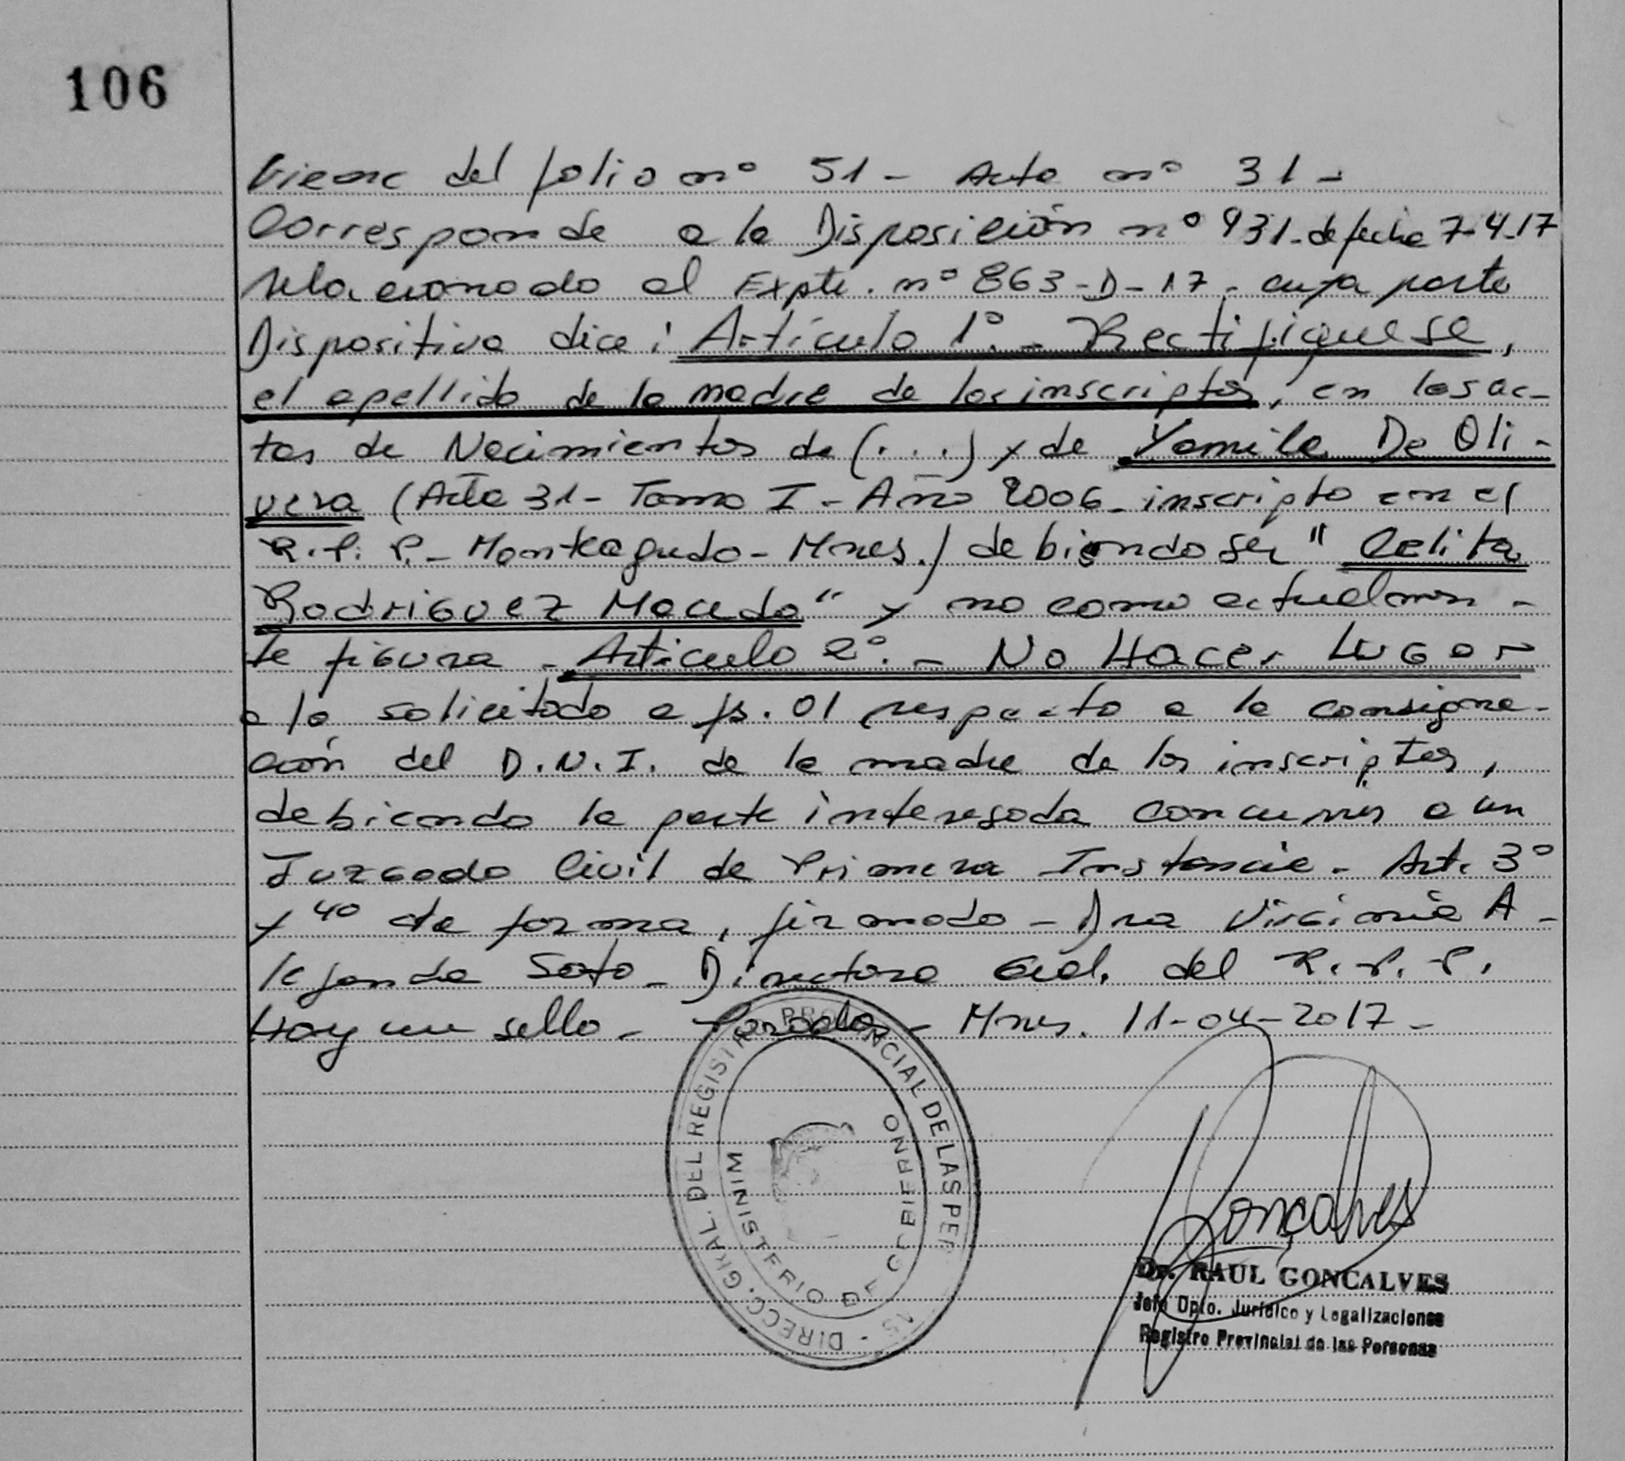 106
Viene del folio nº 51 - Acta nº 31 -
Corresponde a la Disposición nº 931 - de fecha 7-4-17
relacionado al Expte. nº 863-D-17 - cuya parte
Dispositiva dice: Artículo 1º. - Rectifiquese,
el apellido de la madre de los inscriptos, en las ac-
tas de Nacimientos de (...) y de Yamila De Oli-
vera (Acta 31 - Tomo I - Año 2006 - inscripto en el
R.P.P. - Monteagudo - Mnes.) debiendo ser "Celita
Rodriguez Macedo" y no como actualmen-
te figura - Articulo 2º. - No Hacer Lugar
a lo solicitado a fs. 01 respecto a la consigna-
ción del D.N.I. de la madre de los inscriptos,
debiendo la parte interesada concurrir a un
Juzgado Civil de Primera Instancia - Art. 3º
y 4º de forma, firmado - Dra Virginia A-
lejandra Soto - Directora Gral. del R.P.P.
Hay un sello - Posadas - Mnes. 11-04-2017 -
DIRECC. GRAL. DEL REGISTRO PROVINCIAL DE LAS PER AS -
MINISTERIO DE GOBIERNO
Gonçalves
Dr. RAUL GONCALVES
Jefe Dpto. Jurídico y Legalizaciones
Registro Provincial de las Personas